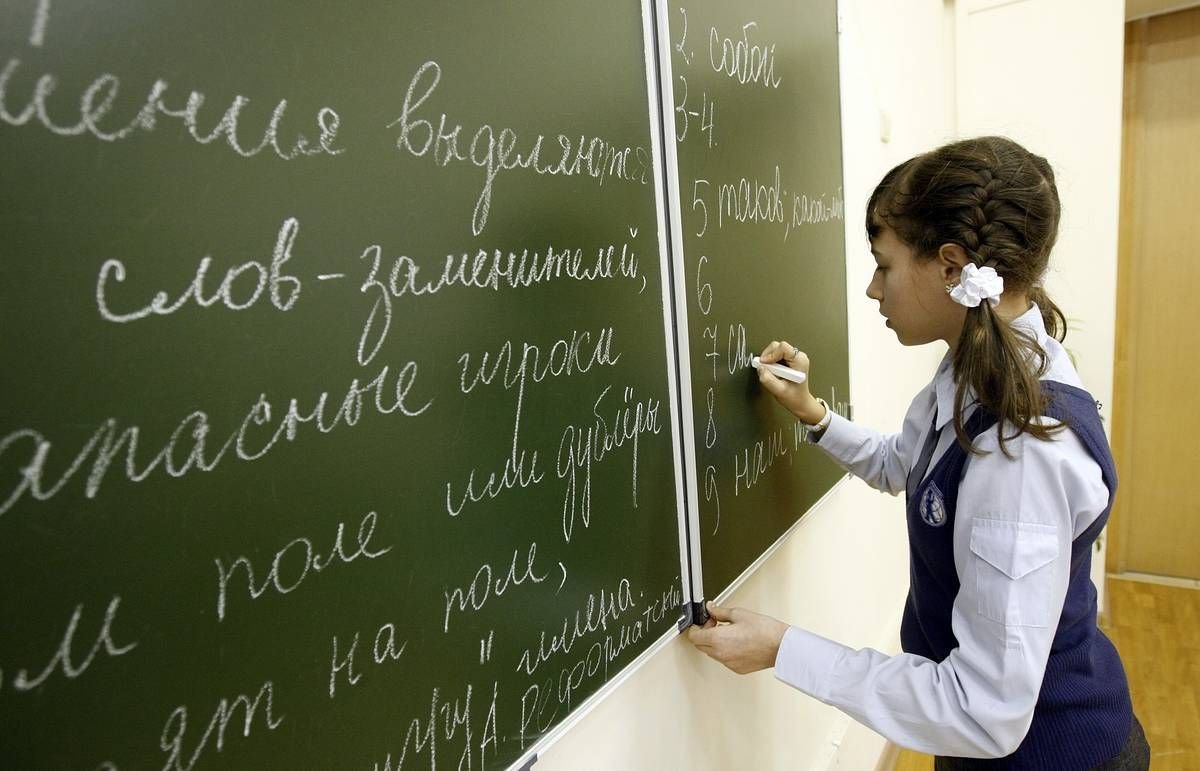 имения выделяются
слов-заменителей,
апасные игроки
м поле или дублёры
ят на поле,
игру " имена.
А. Реформатский
2. собой
3-4.
5 таков; какой-либ
6
7 са
8
9 нам,